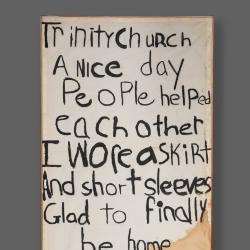 TrinityCHurcH
A NIce day
PeOPle helped
each other
I WOreaSKIRT
And short sleeves
Glad to finally
be home